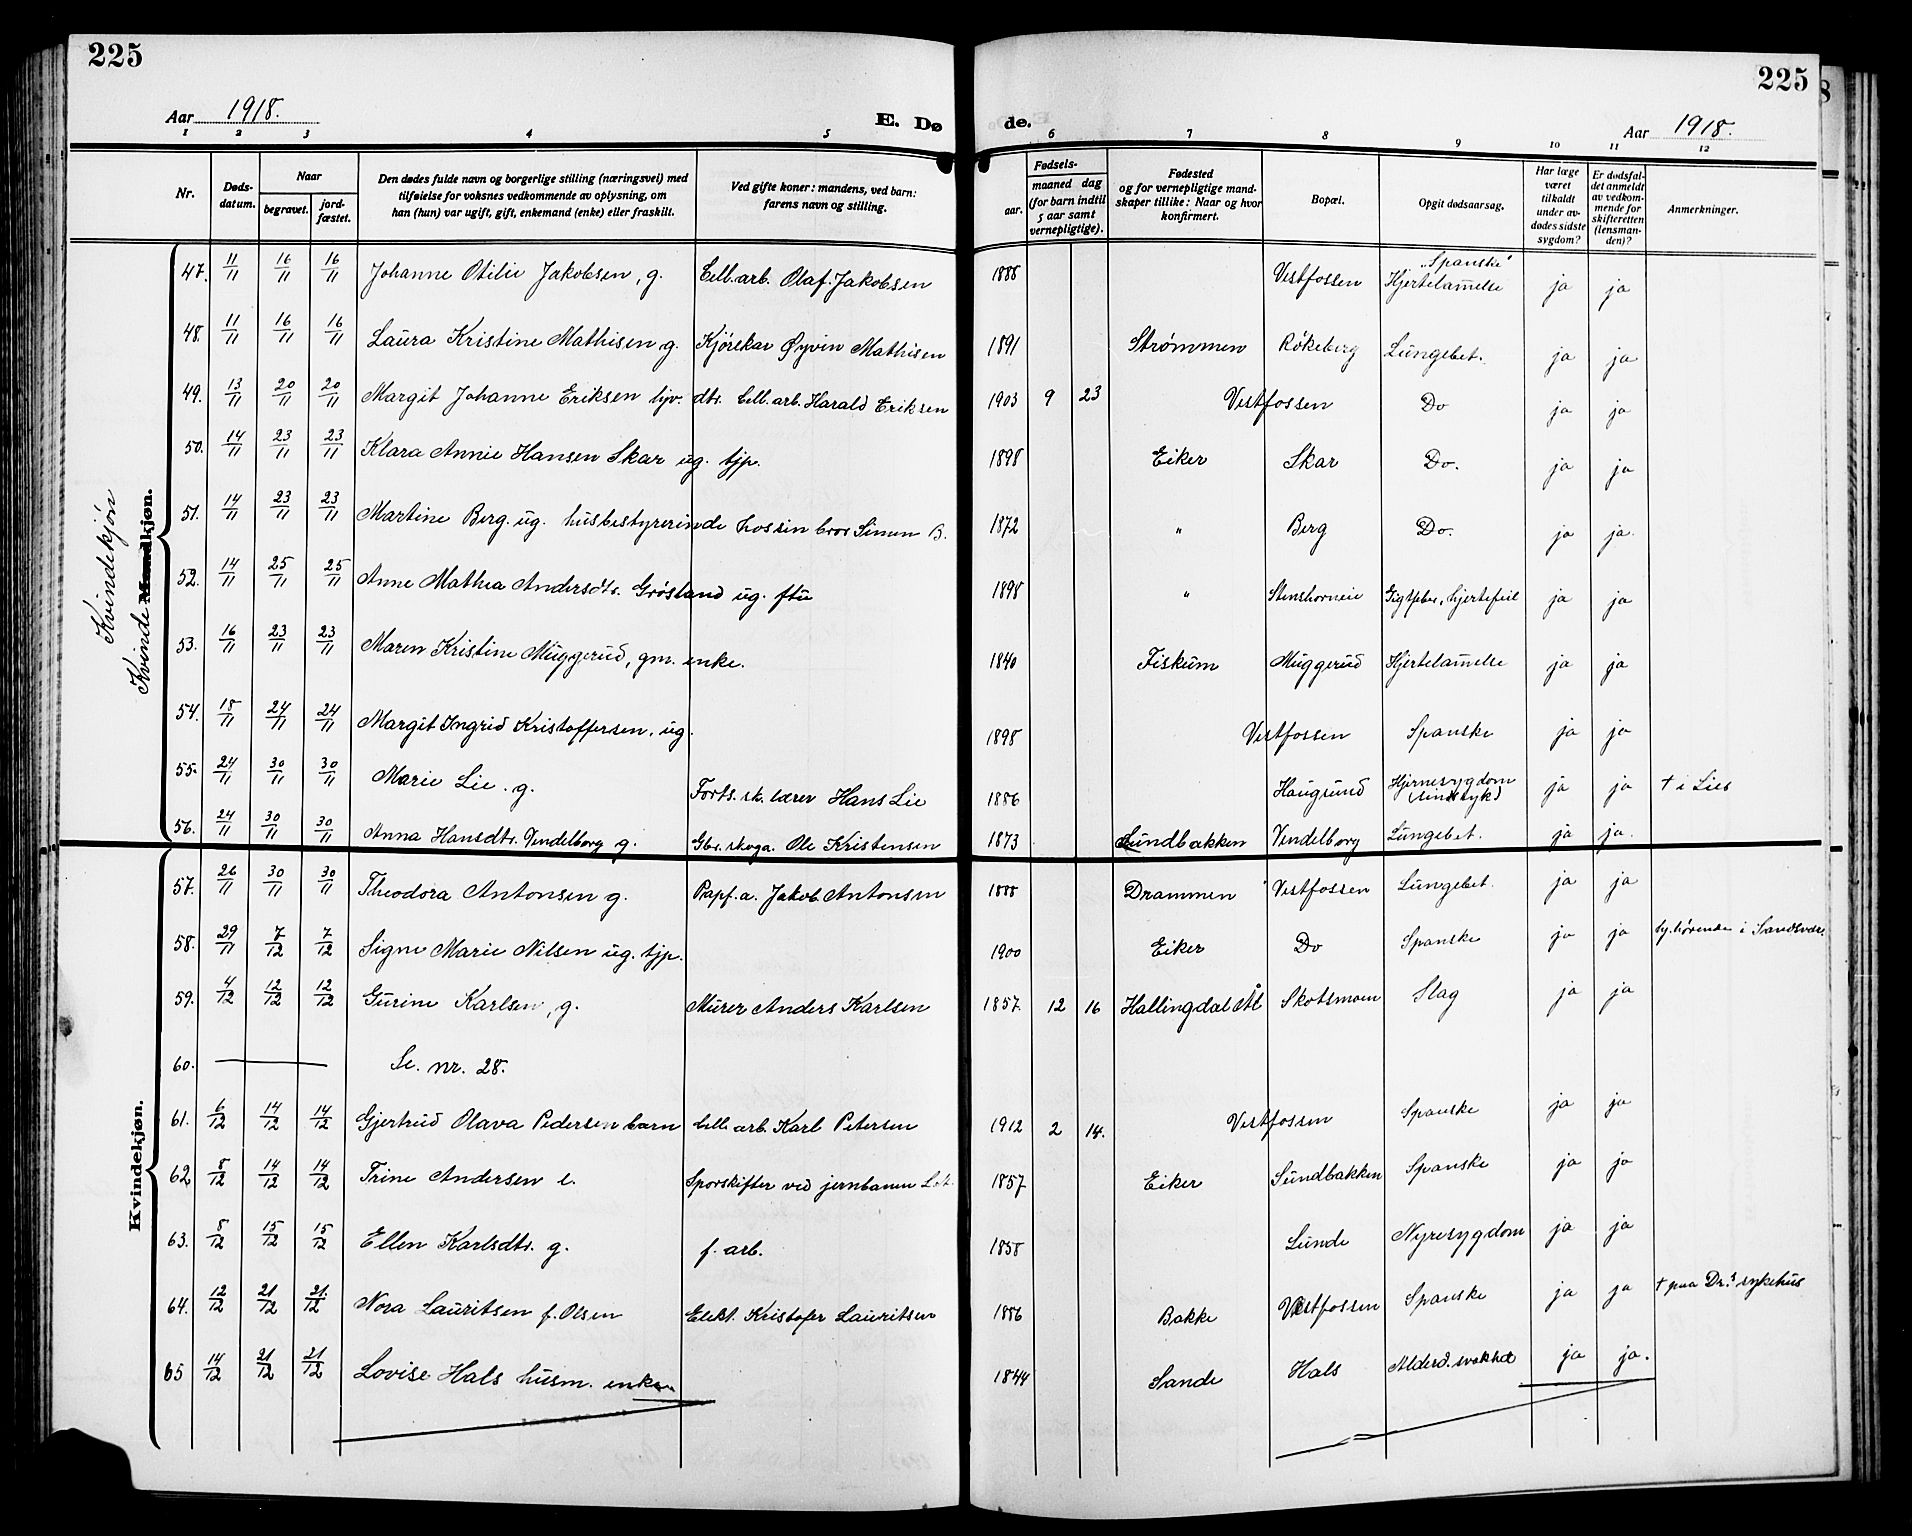 225
225
Aar 1918.
E. Dø de.
Aar 1918.
1 2 3 4 5 6 7 8 9 10 11 12
Nr.
Døds-
datum.
Naar
begravet.
jord-
fæstet.
Den dødes fulde navn og borgerlige stilling (næringsvei) med
tilføielse for voksnes vedkommende av oplysning, om
han (hun) var ugift, gift, enkemand (enke) eller fraskilt.
Ved gifte koner: mandens, ved barn:
farens navn og stilling.
Fødsels-
aar.
maaned dag
(for barn indtil
5 aar samt
vernepligtige).
Fødested
og for vernepligtige mand-
skaper tillike: Naar og hvor
konfirmert.
Bopæl.
Opgit dødsaarsag.
Har læge
været
tilkaldt
under av-
dødes sidste
sygdom?
Er dødsfal-
det anmeldt
av vedkom-
mende for
skifteretten
(lensman-
den)?
Anmerkninger.
Kvindekjøn
Kvinde Mandkjøn.
47. 11/11 16/11 16/11 Johanne Otilie Jakobsen, g. Cell.arb. Olaf Jakobsen 1888 Vestfossen "Spanske" Hjertelammelse ja ja
48. 11/11 16/11 16/11 Laura Kristine Mathisen g. Kjørekar Øyvin Mathisen 1891 Strømmen Røkeberg Lungebet. ja ja
49. 13/11 20/11 20/11 Margit Johanne Eriksen hjv. dtr. Cell.arb. Harald Eriksen 1903 9 23 Vestfossen Do ja ja
50. 14/11 23/11 23/11 Klara Annie Hansen Skar ug. tjp. 1898 Eiker Skar Do. ja ja
51. 14/11 23/11 23/11 Martine Berg. ug. husbestyrerinde hos sin bror Simen B. 1872 " Berg Do. ja ja.
52. 14/11 25/11 25/11 Anne Mathea Andersdtr. Grøsland ug. ftu 1898 " Stenshorneie Gigtfeber, hjertefeil ja ja
53. 16/11 23/11 23/11 Maren Kristine Muggerud, gm. enke. 1840 Fiskum Muggerud Hjertelammelse ja ja
54. 18/11 24/11 24/11 Margit Ingrid Kristoffersen, ug. 1898 Vestfossen Spanske ja ja
55. 24/11 30/11 30/11 Marie Lie. g. Forts.sk. lærer Hans Lie 1886 Haugsund Hjernesygdom (sindssyk) ja ja † i Lier
56. 24/11 30/11 30/11 Anna Hansdtr. Vendelborg g. Gbr. skoga. Ole Kristensen 1873 Sundbakken Vendelborg Lungebet. ja ja.
Kvindekjøn.
57. 26/11 30/11 30/11 Theodora Antonsen g. Papf.a. Jakob Antonsen 1888 Drammen Vestfossen Lungebet. ja ja
58. 29/11 7/12 7/12 Signe Marie Nilsen ug. tjp. 1900 Eiker Do Spanske ja ja hjhørende i Sandsvær.
59. 4/12 12/12 12/12 Gurine Karlsen, g. Murer Anders Karlsen 1857. 12 16 Hallingdal Ål Skotsmoen Slag ja ja
60. Se. nr. 28.
61. 6/12 14/12 14/12 Gjertrud Olava Pedersen barn Cell.arb. Karl Petersen 1912 2 14. Vestfossen Spanske ja ja
62 8/12 14/12 14/12 Trine Andersen e. Sporskifter ved jernbanen 1857 Eiker Sundbakken Spanske ja ja
63. 8/12 15/12 15/12 Ellen Karlsdtr. g. f. arb. 1858 Lunde Nyresygdom ja ja
64. 12/12 21/12 21/12 Nora Lauritsen f. Olsen Elekt. Kristofer Lauritsen 1886 Bakke Vestfossen Spanske ja ja † paa Dr.s sykehus
65 14/12 21/12 21/12 Lovise Hals husm. enke 1844 Sande Hals Alderd. svakhet ja ja.